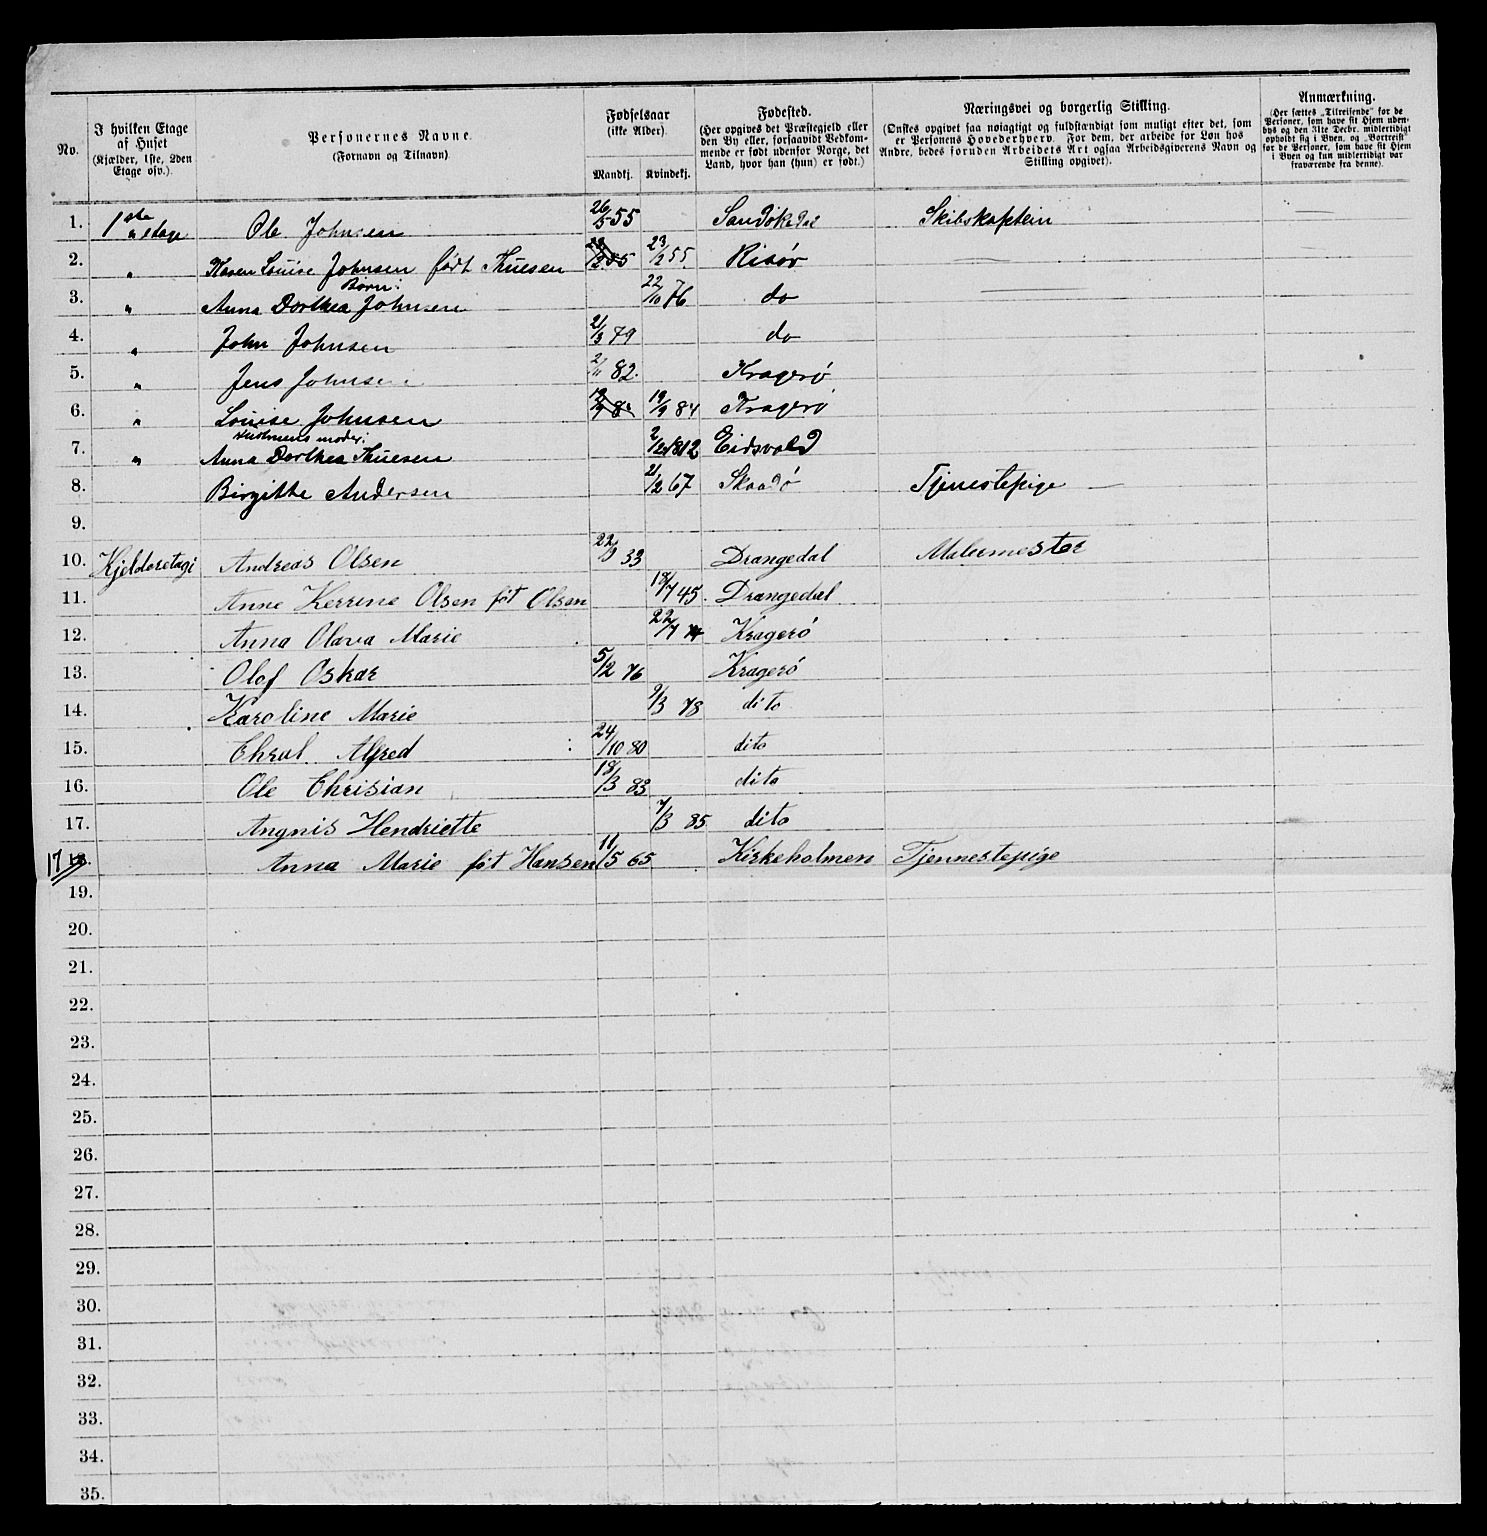 No.
I hvilken Etage af Huset (Kjælder, 1ste, 2den Etage osv.).
Personernes Navne. (Fornavn og Tilnavn).
Fødselsaar (ikke Alder).
Mandkj. Kvindekj.
Fødested. (Her opgives det Præstegjeld eller den By eller, forsaavidt Vedkommende er født udenfor Norge, det Land, hvor han (hun) er født.)
Næringsvei og borgerlig Stilling. (Ønskes opgivet saa nøiagtigt og fuldstændigt som muligt efter det, som er Personens Hovederhverv. For dem, der arbeide for Løn hos Andre, bedes foruden Arbeidets Art ogsaa Arbeidsgiverens Navn og Stilling opgivet).
Anmærkning. (Her sættes „Tilreisende" for de Personer, som have sit Hjem udenbys og den 31te Decbr. midlertidigt opholdt sig i Byen, og „Bortreist" for de Personer, som have sit Hjem i Byen og kun midlertidigt var fraværende fra denne).
1. 1ste etage Ole Johnsen 26/5 55 Sandøkedal Skibskaptein
2. " Karen Louise Johnsen født Thuesen 23/2 55 23/2 55. Risør
Børn:
3. " Anna Dorthea Johnsen 22/10 76 do
4. " John Johnsen 21/3 79 do
5. " Jens Johnsen 2/11 82. Kragerø
6. " Louise Johnsen 19/9 84 19/9 84 Kragerø
moder:
7. " Anna Dorthea Thuesen 2/12 1812 Eidsvold
8. Birgitte Andersen 21/2 67 Skaadø Tjenestepige
9.
10. Kjelderetagi Andreas Olsen 22/9 33 Drangedal Malermester
11. Anne Kerrine Olsen føt Olsen 18/7 45. Drangedal
12. Anna Olava Marie 22/7 74 Kragerø
13. Olaf Oskar 5/12 76 Kragerø
14. Karoline Marie 9/3 78 dito
15. Alfred 24/10 80 dito
16. Ole Chrisian 18/3 83 dito
17. Angnis Hendriette 7/3 85 dito
17 18. Anna Marie føt Hansen 11/5 65 Kirkeholmen Tjennestepige
19.
20.
21.
22.
23.
24.
25.
26.
27.
28.
29.
30.
31.
32.
33.
34.
35.